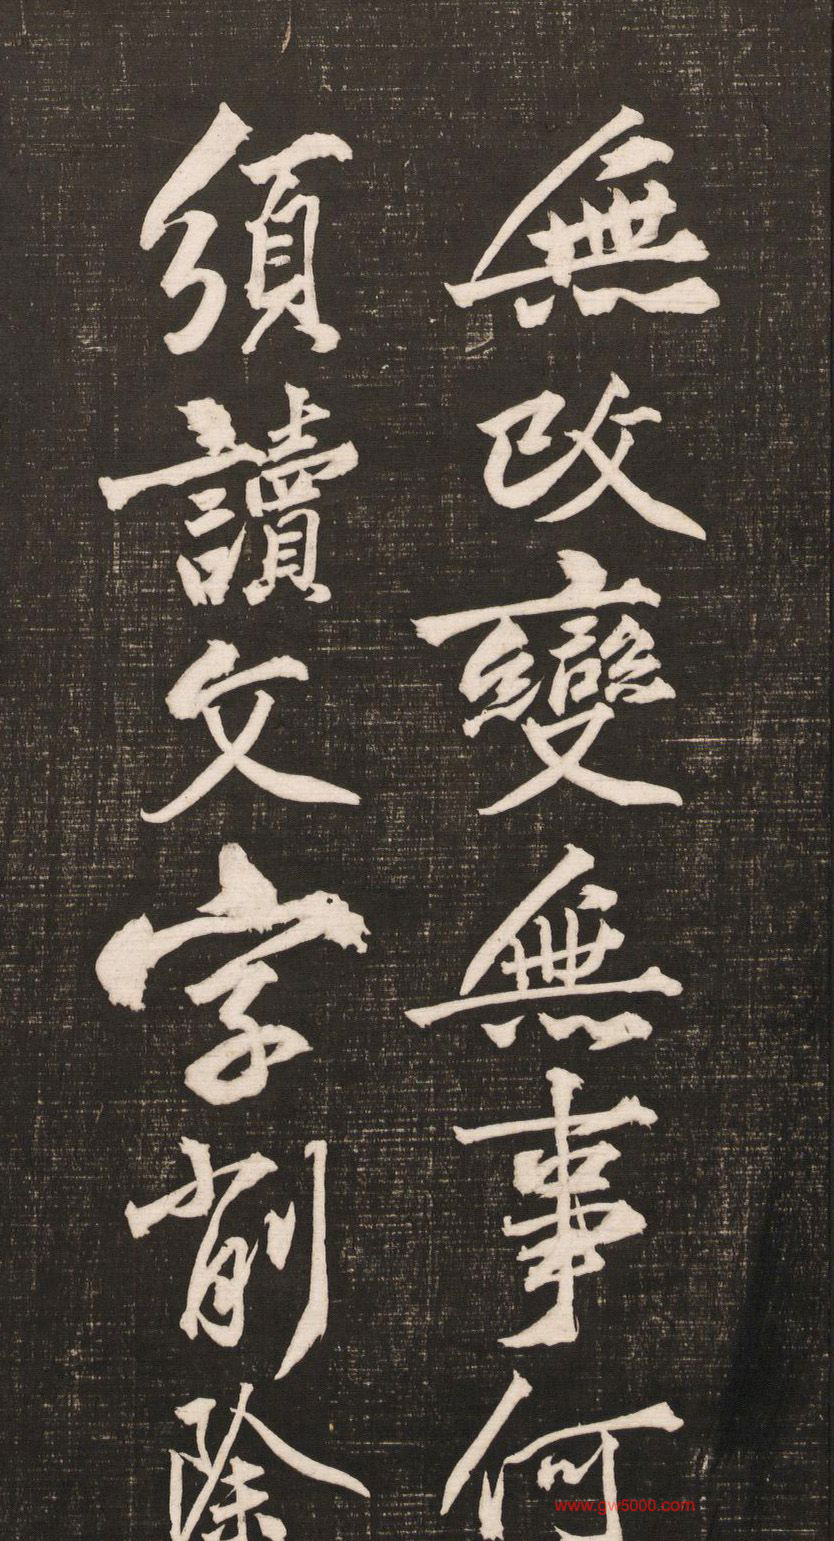 無改變無事何
須讀文字削除
www.gw5000.com